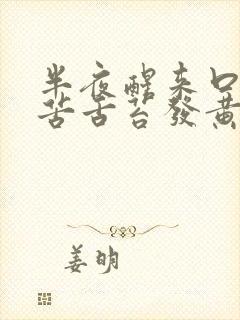 半夜醒来口
苦舌苔發黄
姜明